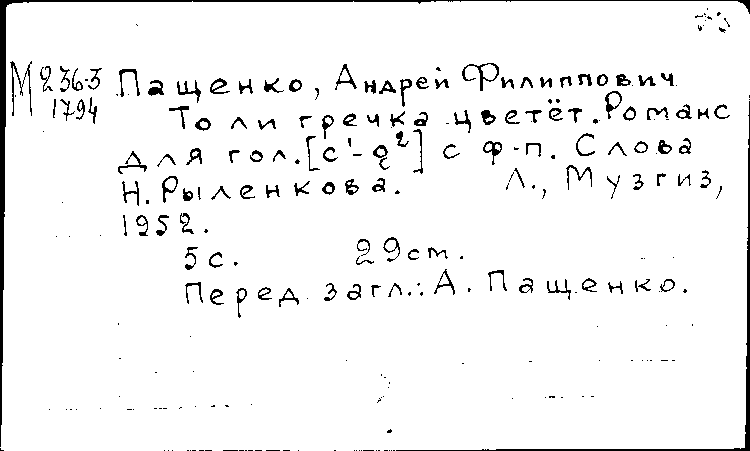 М 236-3 Пащенко, Андрей Филиппович
1794 То ли гречка цветёт. Романс
для гол. [c¹-g²] с ф-п. Слова
Н. Рыленкова. Л., Музгиз,
1952.
5 с. 29 см.
Перед загл.: А. Пащенко.